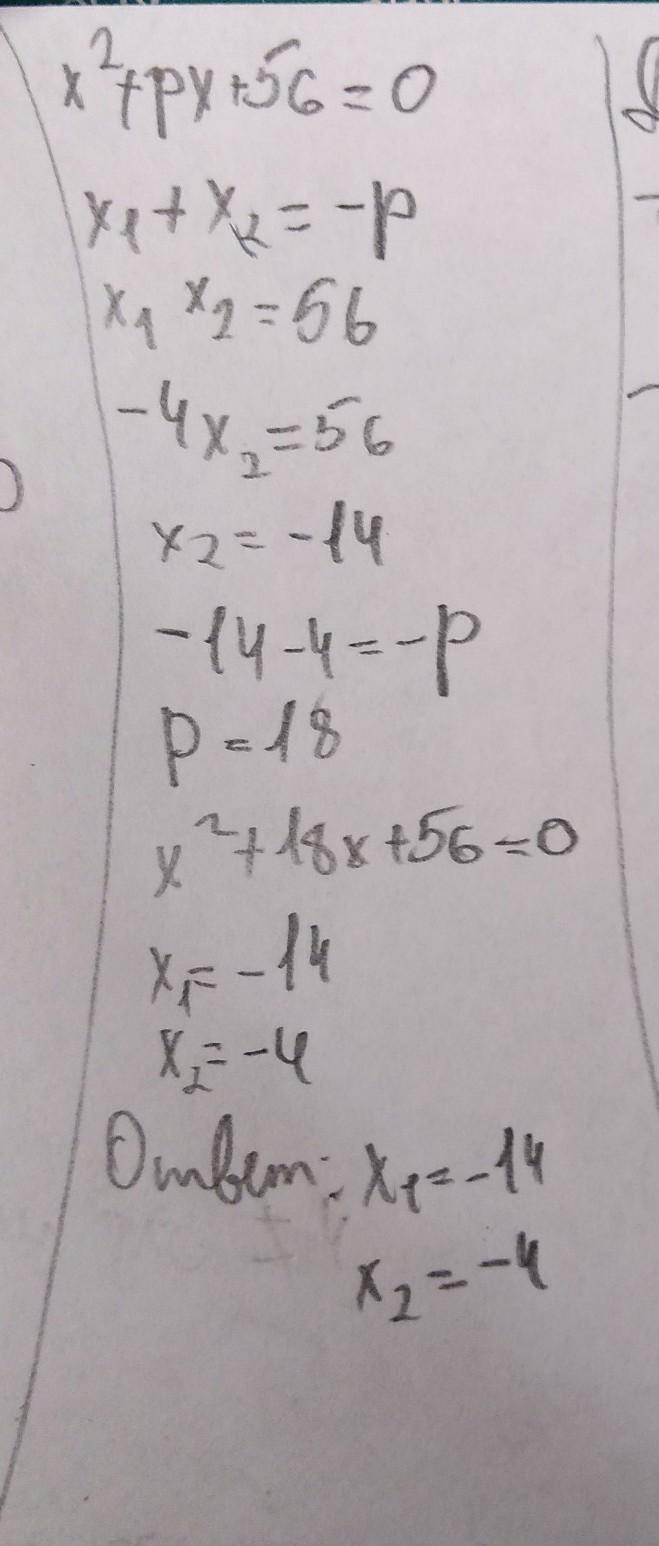 x²+px+56=0
x₁+x₂=-p
x₁ x₂=56
-4x₂=56
x₂=-14
-14-4=-p
p=18
x²+18x+56=0
x₁=-14
x₂=-4
Ответ: x₁=-14
x₂=-4